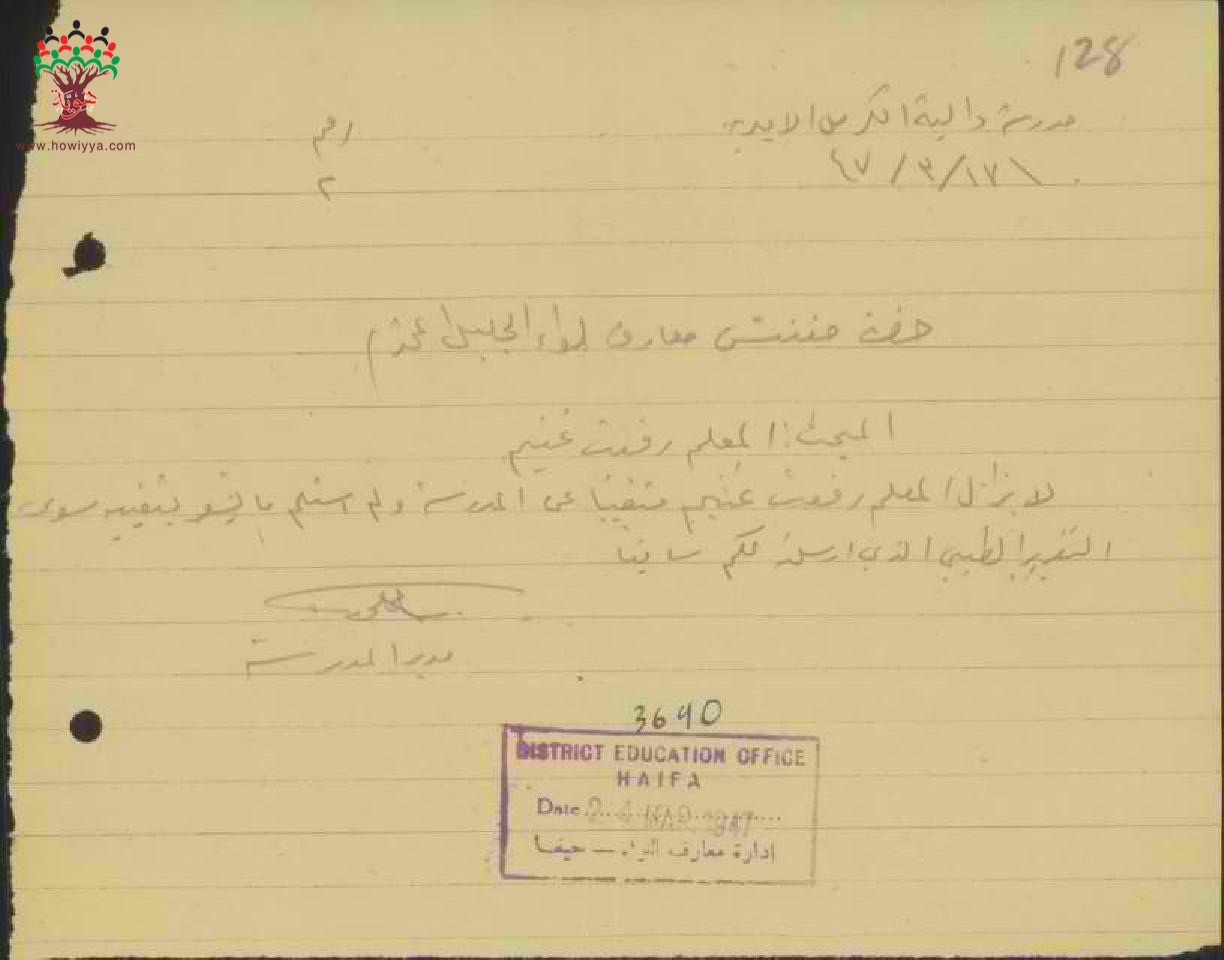 128
مدرسة دالية الكرمل الاميرية
١٧/٣/٤٧
رقم
٢
حضرة مفتش معارف لواء الجليل المحترم
المبحث: المعلم رفعت غنيم
لا يزال المعلم رفعت غنيم متغيبا عن المدرسة ولم استلم ما يتعلق بتغيبه سوى
التقرير الطبي الذي ارسلته لكم سابقا
مدير المدرسة
3690
DISTRICT EDUCATION OFFICE
HAIFA
Date 24 MAR. 1947
إدارة معارف اللواء – حيفا
هوية
www.howiyya.com